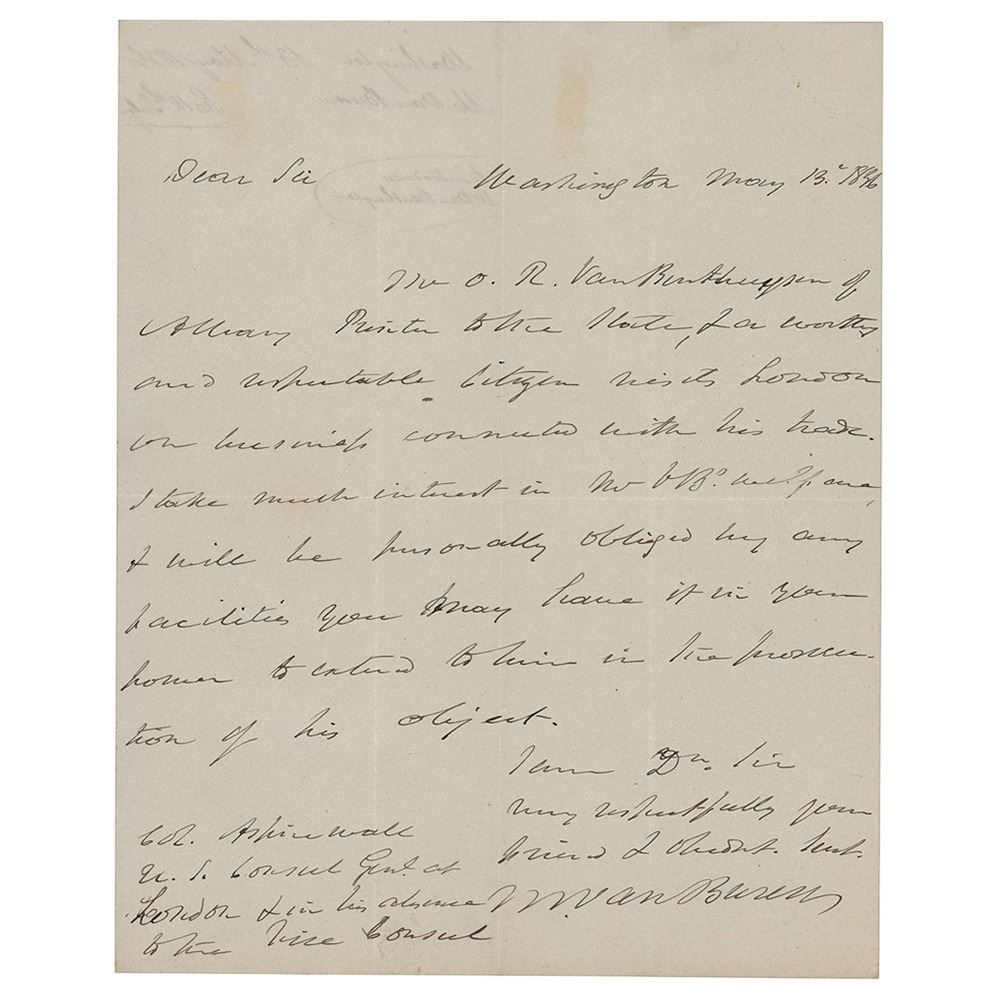 Dear Sir Washington May 13. 1836
Mr O. R. Van Benthuysen of
Albany Printer to the State, & a worthy
and respectable Citizen visits London
on business connected with his trade.
I take much interest in Mr V Bs. welfare,
& will be personally obliged by any
facilities you may have it in your
power to extend to him in the prosecu-
tion of his object.
I am Dr. Sir
very respectfully your
friend & obedt. Servt.
M. Van Buren
Col. Aspinwall
U. S. Consul Genl. at
London & in his absence
to the Vice Consul